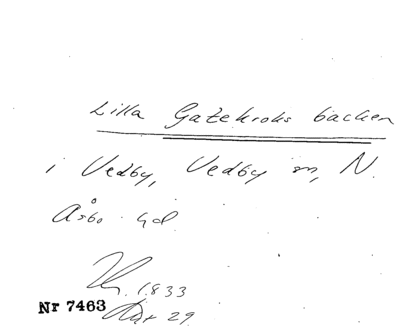 Lilla Gatekroksbacken
i Vedby, Vedby sn, N.
Åsbo hd.
1833
Nr 7463
29